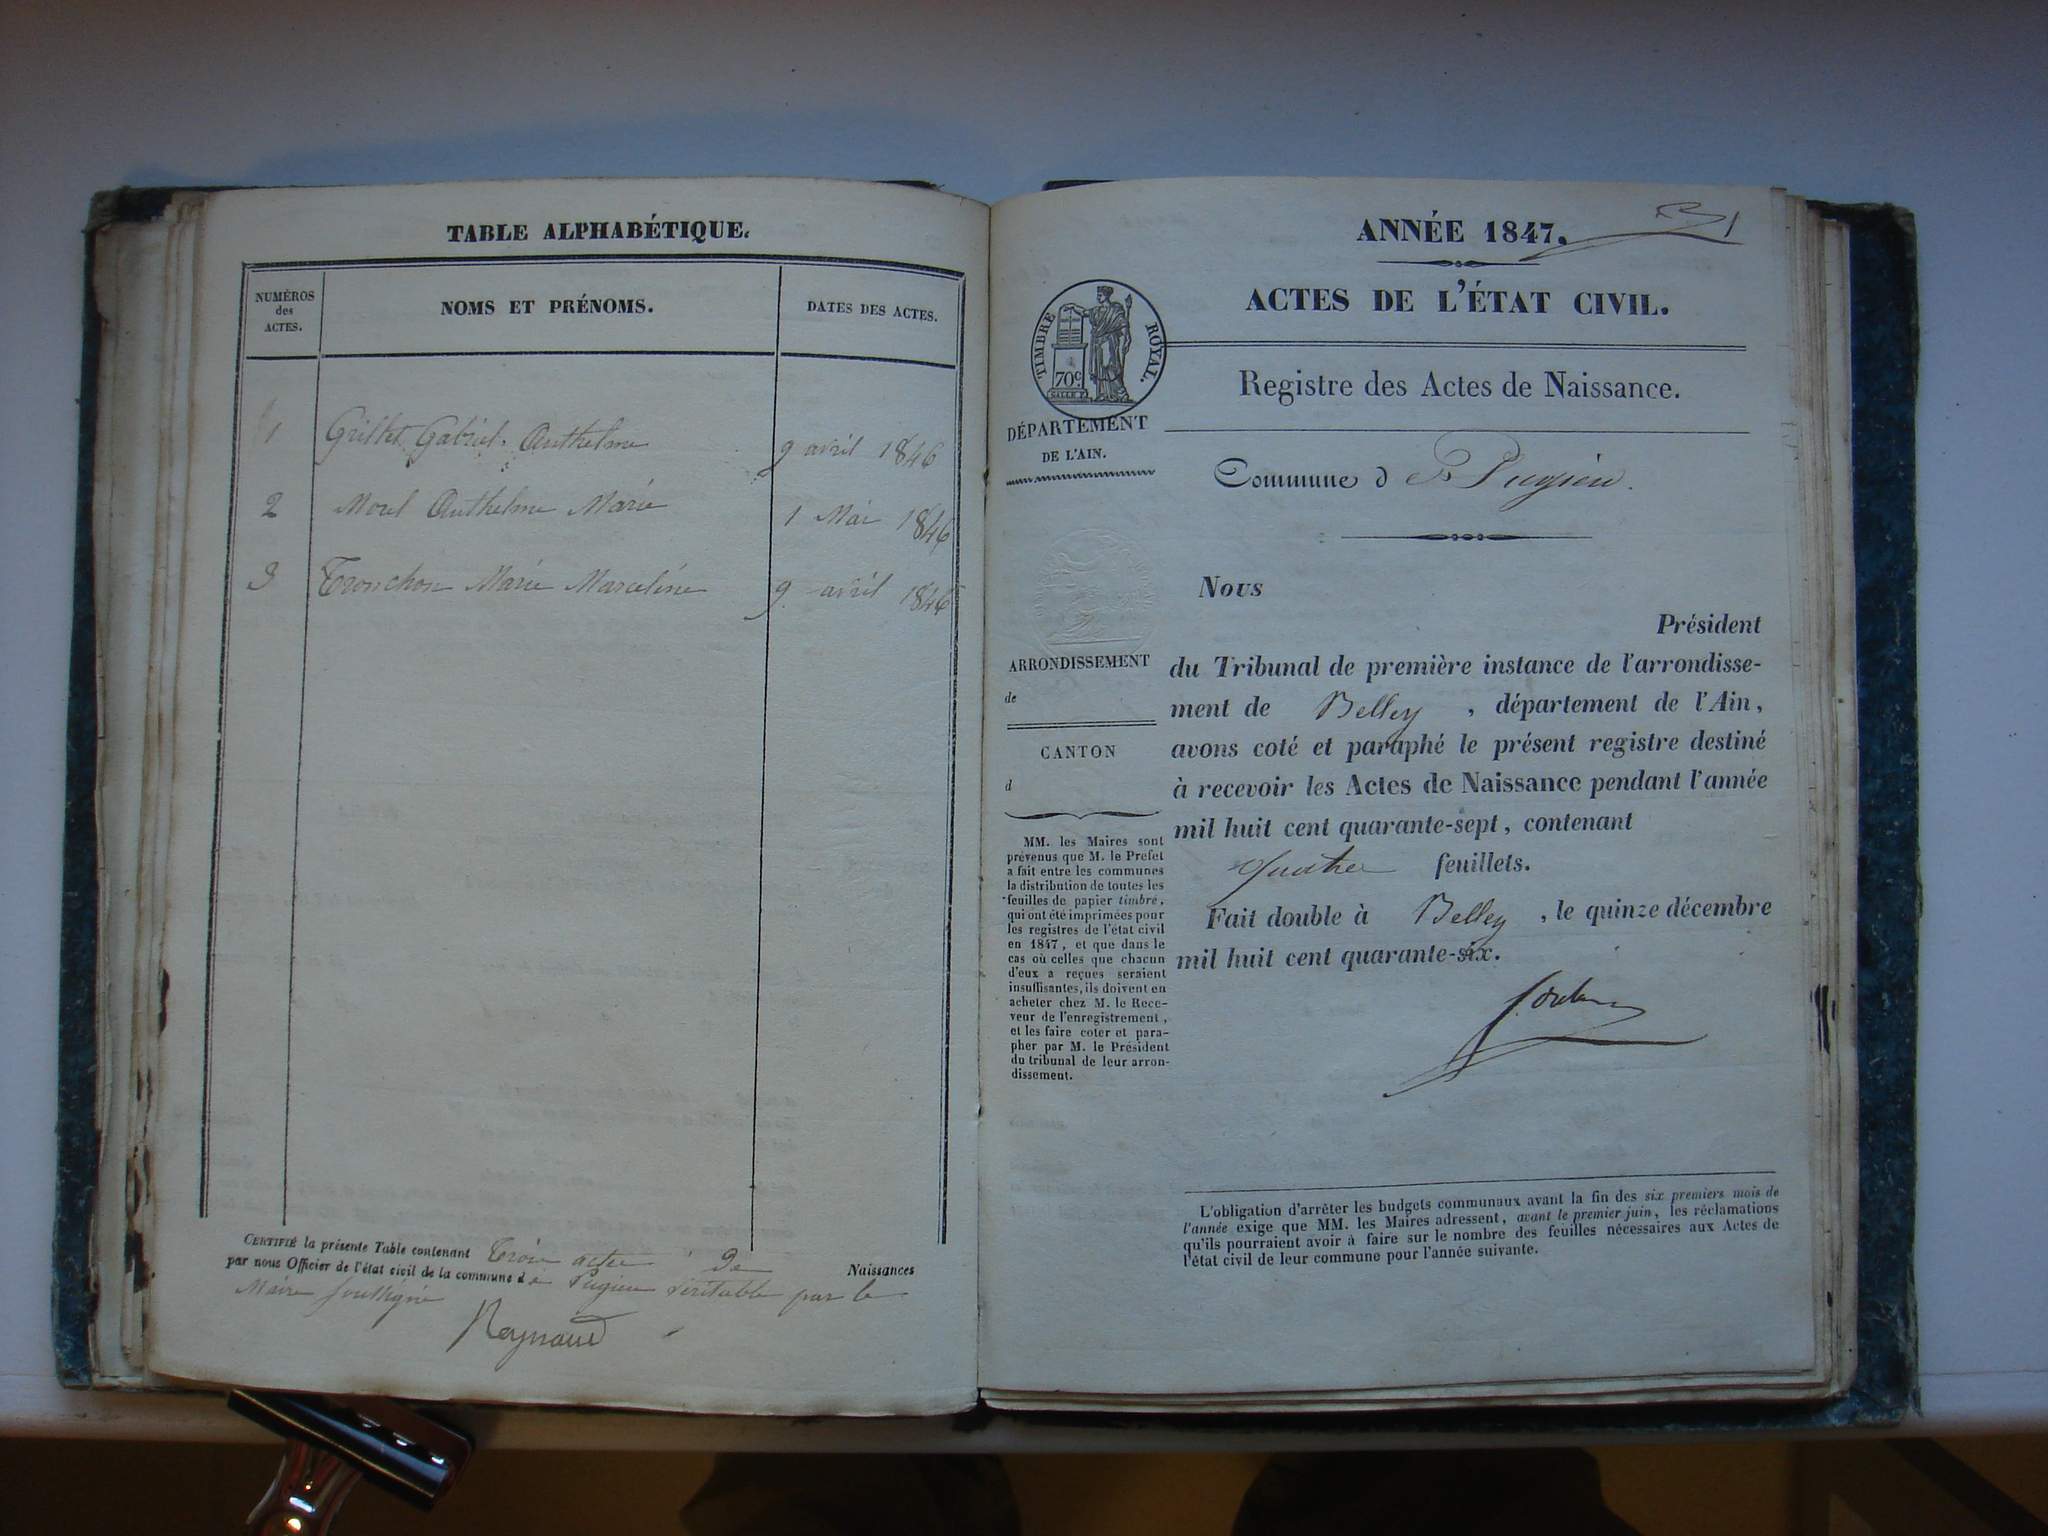 TABLE ALPHABÉTIQUE.
NUMÉROS des ACTES.
NOMS ET PRÉNOMS.
DATES DES ACTES.
1 Grillet Gabriel Anthelme 9 avril 1846
2 Morel Anthelme Marie 1 Mai 1846
3 Tronchon Marie Marceline 9 avril 1846
CERTIFIÉ la présente Table contenant Trois actes De Naissances
par nous Officier de l'état civil de la commune de Pugieu véritable par le
Maire soussigné
Reynaud
1
ANNÉE 1847.
ACTES DE L'ÉTAT CIVIL.
TIMBRE ROYAL.
70c
Registre des Actes de Naissance.
DÉPARTEMENT
DE L'AIN.
Commune d Pugieu.
Nous
Président
ARRONDISSEMENT
de
CANTON
d
du Tribunal de première instance de l'arrondisse-
ment de Belley , département de l'Ain,
avons coté et paraphé le présent registre destiné
à recevoir les Actes de Naissance pendant l'année
mil huit cent quarante-sept, contenant
quatre feuillets.
Fait double à Belley , le quinze décembre
mil huit cent quarante-six.
MM. les Maires sont
prévenus que M. le Prefet
a fait entre les communes
la distribution de toutes les
feuilles de papier timbré,
qui ont été imprimées pour
les registres de l'état civil
en 1847, et que dans le
cas où celles que chacun
d'eux a reçues seraient
insuffisantes, ils doivent en
acheter chez M. le Rece-
veur de l'enregistrement,
et les faire coter et para-
pher par M. le Président
du tribunal de leur arron-
dissement.
L'obligation d'arrêter les budgets communaux avant la fin des six premiers mois de
l'année exige que MM. les Maires adressent, avant le premier juin, les réclamations
qu'ils pourraient avoir à faire sur le nombre des feuilles nécessaires aux Actes de
l'état civil de leur commune pour l'année suivante.